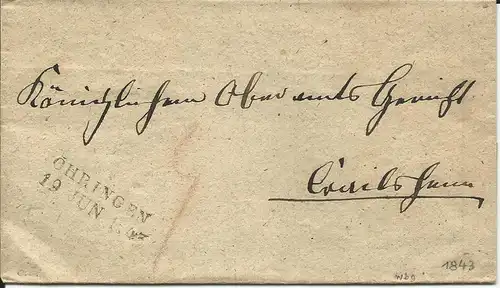 Königlichem Oberamts Gericht
Crailsheim
ÖHRINGEN
19 JUN
1843